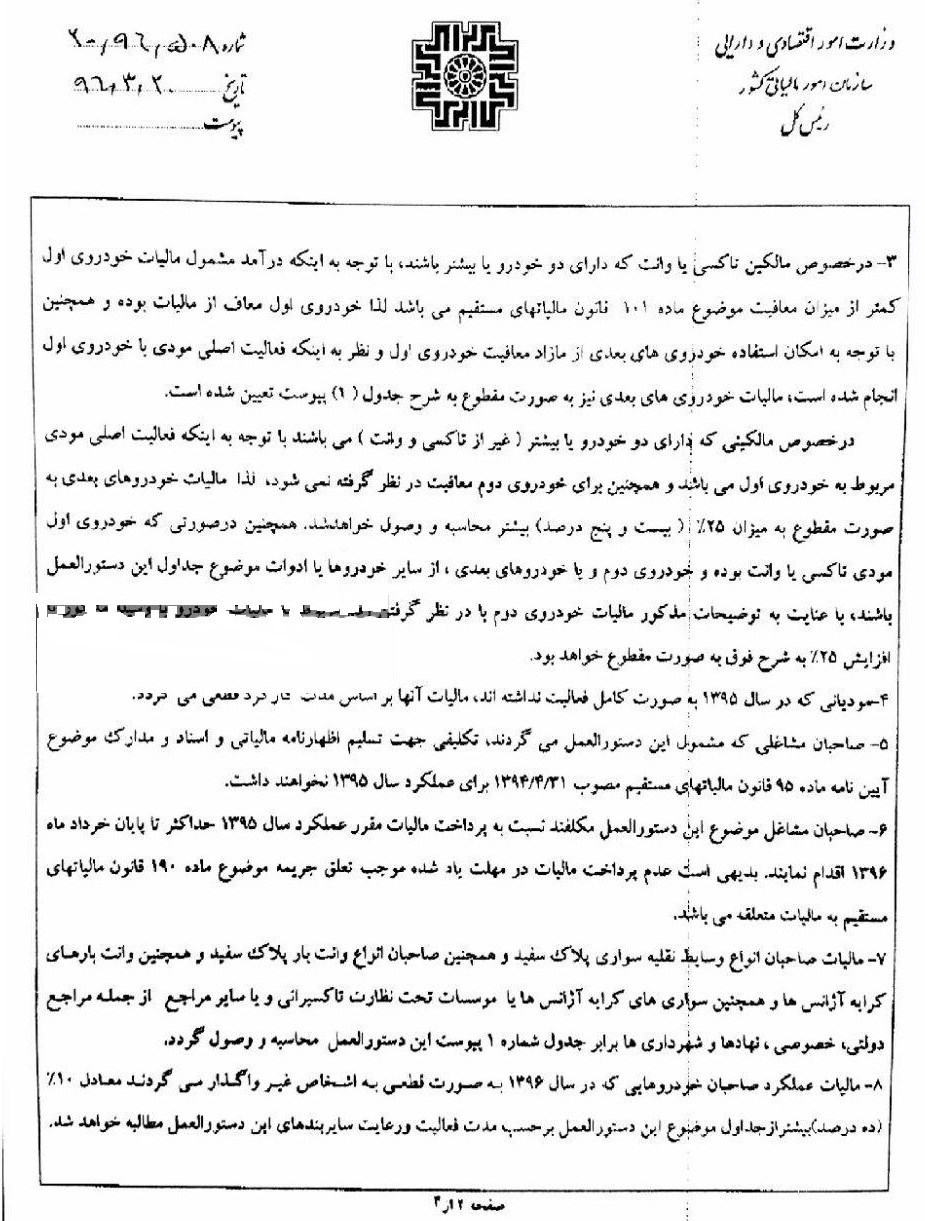 وزارت امور اقتصادی و دارایی
سازمان امور مالیاتی کشور
رئیس کل
شماره ۲۰۰,۹۶,۵۰۸
تاریخ ۹۶,۳,۲۰
پیوست
۳- درخصوص مالکین تاکسی یا وانت که دارای دو خودرو یا بیشتر باشند، با توجه به اینکه درآمد مشمول مالیات خودروی اول
کمتر از میزان معافیت موضوع ماده ۱۰۱ قانون مالیاتهای مستقیم می باشد لذا خودروی اول معاف از مالیات بوده و همچنین
با توجه به امکان استفاده خودروی های بعدی از مازاد معافیت خودروی اول و نظر به اینکه فعالیت اصلی مودی با خودروی اول
انجام شده است، مالیات خودروی های بعدی نیز به صورت مقطوع به شرح جدول (۱) پیوست تعیین شده است.
درخصوص مالکینی که دارای دو خودرو یا بیشتر (غیر از تاکسی و وانت) می باشند با توجه به اینکه فعالیت اصلی مودی
مربوط به خودروی اول می باشد و همچنین برای خودروی دوم معافیت در نظر گرفته نمی شود، لذا مالیات خودروهای بعدی به
صورت مقطوع به میزان ۲۵٪ (بیست و پنج درصد) بیشتر محاسبه و وصول خواهدشد. همچنین درصورتی که خودروی اول
مودی تاکسی یا وانت بوده و خودروی دوم و یا خودروهای بعدی، از سایر خودروها یا ادوات موضوع جداول این دستورالعمل
باشند، با عنایت به توضیحات مذکور مالیات خودروی دوم با در نظر
افزایش ۲۵٪ به شرح فوق به صورت مقطوع خواهد بود.
۴-مودیانی که در سال ۱۳۹۵ به صورت کامل فعالیت نداشته اند، مالیات آنها بر اساس مدت کارکرد قطعی می گردد.
۵- صاحبان مشاغلی که مشمول این دستورالعمل می گردند، تکلیفی جهت تسلیم اظهارنامه مالیاتی و اسناد و مدارک موضوع
آیین نامه ماده ۹۵ قانون مالیاتهای مستقیم مصوب ۱۳۹۴/۴/۳۱ برای عملکرد سال ۱۳۹۵ نخواهند داشت.
۶- صاحبان مشاغل موضوع این دستورالعمل مکلفند نسبت به پرداخت مالیات مقرر عملکرد سال ۱۳۹۵ حداکثر تا پایان خرداد ماه
۱۳۹۶ اقدام نمایند. بدیهی است عدم پرداخت مالیات در مهلت یاد شده موجب تعلق جریمه موضوع ماده ۱۹۰ قانون مالیاتهای
مستقیم به مالیات متعلقه می باشد.
۷- مالیات صاحبان انواع وسایط نقلیه سواری پلاک سفید و همچنین صاحبان انواع وانت بار پلاک سفید و همچنین وانت بارهای
کرایه آژانس ها و همچنین سواری های کرایه آژانس ها یا موسسات تحت نظارت تاکسیرانی و یا سایر مراجع از جمله مراجع
دولتی، خصوصی، نهادها و شهرداری ها برابر جدول شماره ۱ پیوست این دستورالعمل محاسبه و وصول گردد.
۸- مالیات عملکرد صاحبان خودروهایی که در سال ۱۳۹۶ به صورت قطعی به اشخاص غیر واگذار می گردند معادل ۱۰٪
(ده درصد)بیشترازجداول موضوع این دستورالعمل برحسب مدت فعالیت ورعایت سایربندهای این دستورالعمل مطالبه خواهد شد.
صفحه ۲ از ۳